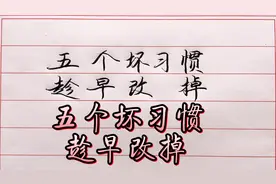 五个坏习惯
趁早改掉
五个坏习惯
趁早改掉